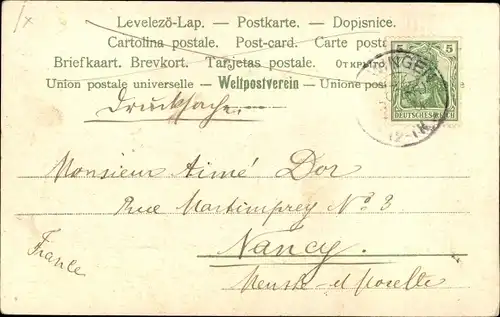 Levelező-Lap. — Postkarte. — Dopisnice.
Cartolina postale. Post-card. Carte post
Briefkaart. Brevkort. Tarjetas postale. ОТКРЫТО
Union postale universelle — Weltpostverein — Unione pos
5 5
DEUTSCHES REICH
NGE
12-1N
Drucksache.
Monsieur Aimé Dor
Rue Martimprey No 3
Nancy.
France
Meurthe-et-Moselle